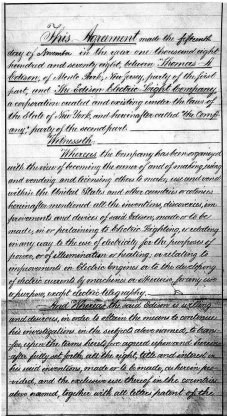 This Agreement made the fifteenth
day of November in the year one thousand eight
hundred and seventy eight, between Thomas A
Edison, of Menlo Park, New Jersey, party of the first
part, and The Edison Electric Light Company
a corporation created and existing under the laws of
the State of New York, and hereinafter called "the Comp-
any," party of the second part.
Witnesseth:
Whereas the Company has been organized
with the view of becoming the owner of and of making, using
and vending and licensing others to make, use and vend
within the United States and other countries
hereinafter mentioned all the inventions, discoveries, im-
provements and devices of said Edison, made or to be
made, in or pertaining to Electric Lighting, or relating
in any way to the use of electricity for the purposes of
power, or of illumination or heating, or relating to
improvements in Electric Engines or to the developing
of electric currents by machines or otherwise, for any use
or purpose, except electric telegraphy.
And Whereas the said Edison is willing
and desirous, in order to obtain the means to continue
his investigations in the subjects above named, to trans-
fer, upon the terms herein agreed upon and
after fully set forth, all the right, title and interest in
his said inventions, made or to be made, as herein pro-
vided, and the exclusive use thereof in the countries
above named, together with all letters patent of the